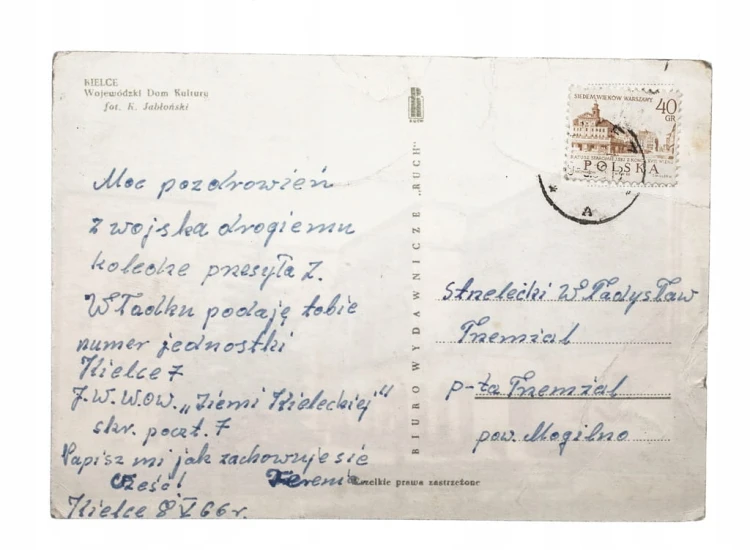 KIELCE
Wojewódzki Dom Kultury
fot. K. Jabłoński
Moc pozdrowień
z wojska drogiemu
koledze przesyła Z.
Władku podaję tobie
numer jednostki
Kielce 7
J.W. W.O.W. „Ziemi Kieleckiej"
skr. poczt. 7
Napisz mi jak zachowuje sie
Cześć!
Kielce 8 V 66 r.
BIURO WYDAWNICZE „RUCH"
Wszelkie prawa zastrzeżone
SIEDEM WIEKÓW WARSZAWY
40
GR
POLSKA
A
Strzelecki Władysław
Trzemżal
p-ta Trzemżal
pow. Mogilno